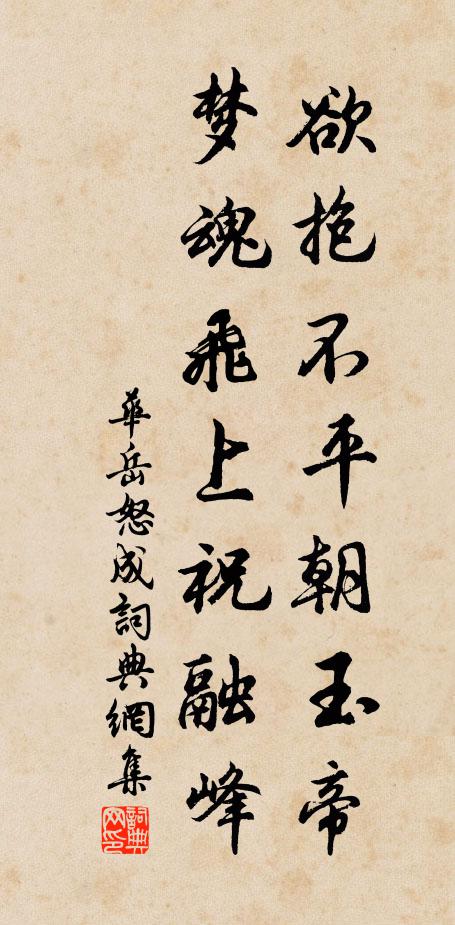 欲抱不平朝玉帝
梦魂飛上祝融峰
華岳怒成詞典網集
詞典网印